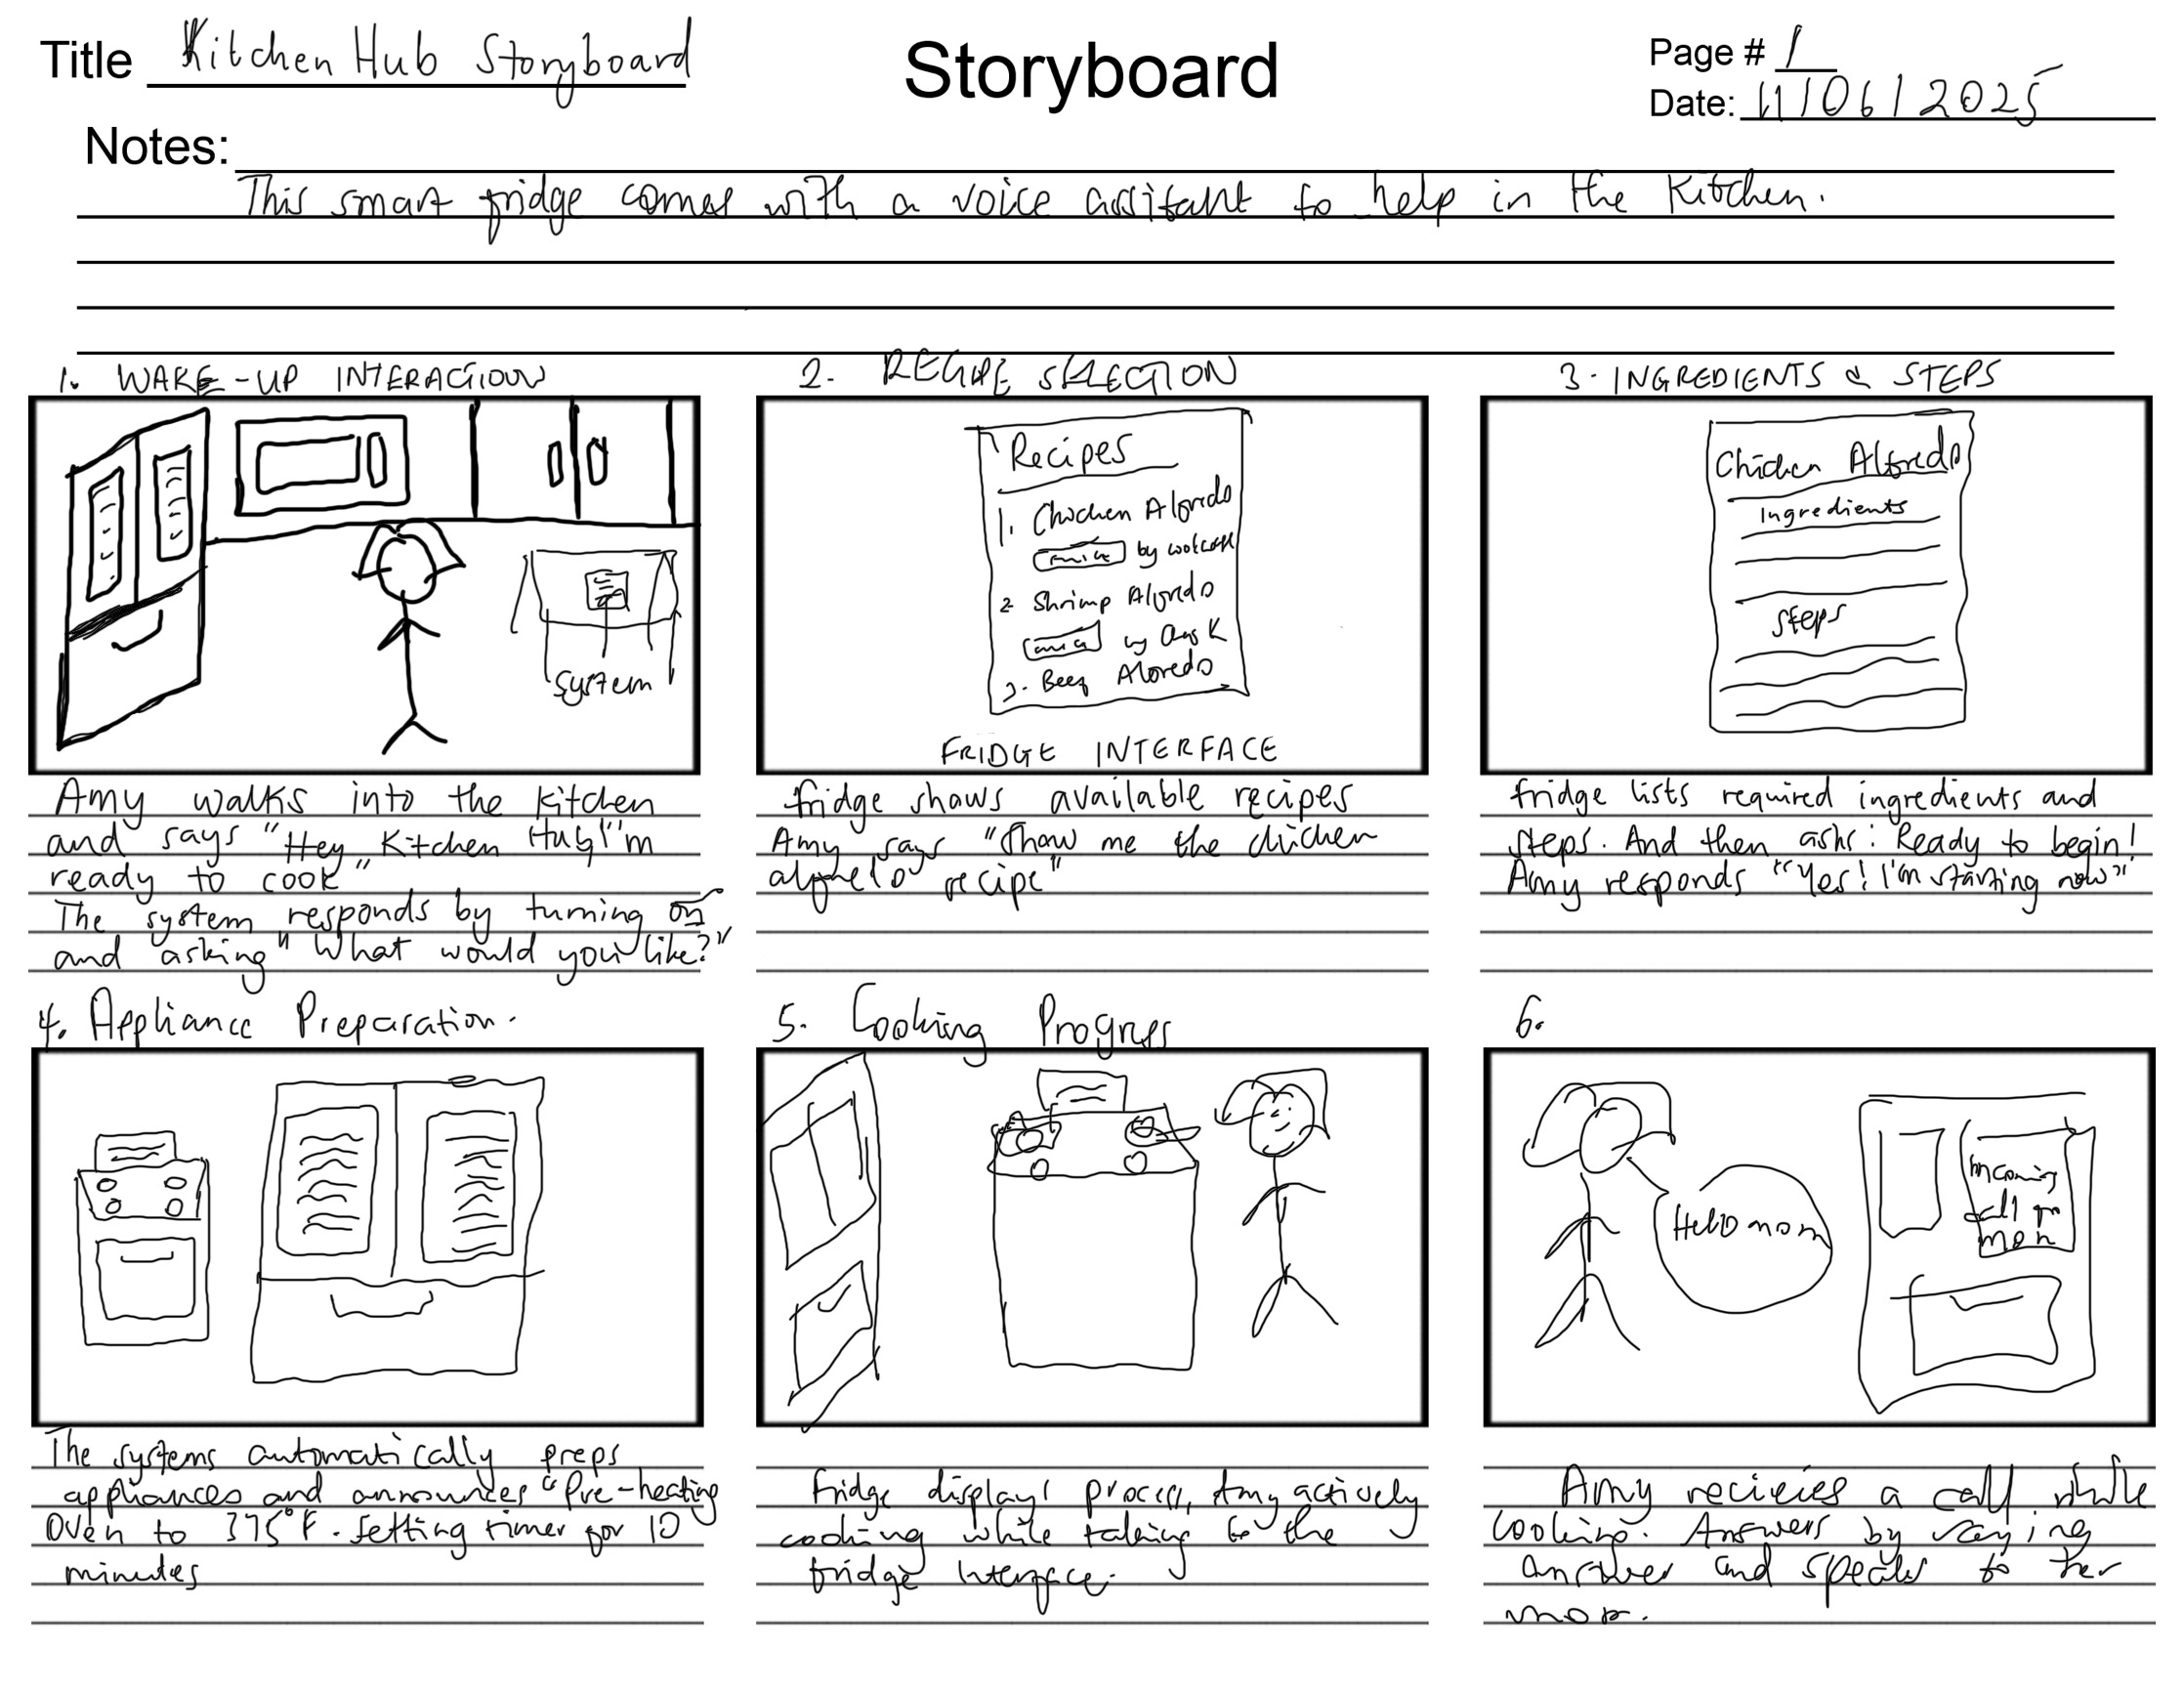 Title Kitchen Hub Storyboard
Storyboard
Page # 1
Date: 11/06/2025
Notes:
This smart fridge comes with a voice assitant to help in the Kitchen.
1. WAKE-UP INTERACTION
System
Amy walks into the kitchen
and says "Hey Kitchen Hub I'm
ready to cook"
The system responds by turning on
and asking "What would you like?"
2. RECIPE SELECTION
Recipes
1. Chicken Alfredo
by
2. Shrimp Alfredo
by
3. Beef Alfredo
FRIDGE INTERFACE
fridge shows available recipes
Amy says "Show me the chicken
recipe"
3. INGREDIENTS & STEPS
Chicken Alfredo
Ingredients
Steps
fridge lists required ingredients and
steps. And then asks: Ready to begin!
Amy responds "Yes! I'm starting now"
4. Appliance Preparation.
The systems automatically preps
appliances and announces "Pre-heating
Oven to 375°F. Setting timer for 10
minutes
5. Cooking Progress
Fridge displays process, Amy actively
cooking while talking to the
fridge Interface.
6.
Hello mom
Incoming
call
mom
Amy recieves a call while
cooking. Answers by saying
answer and speaks to her
mom.